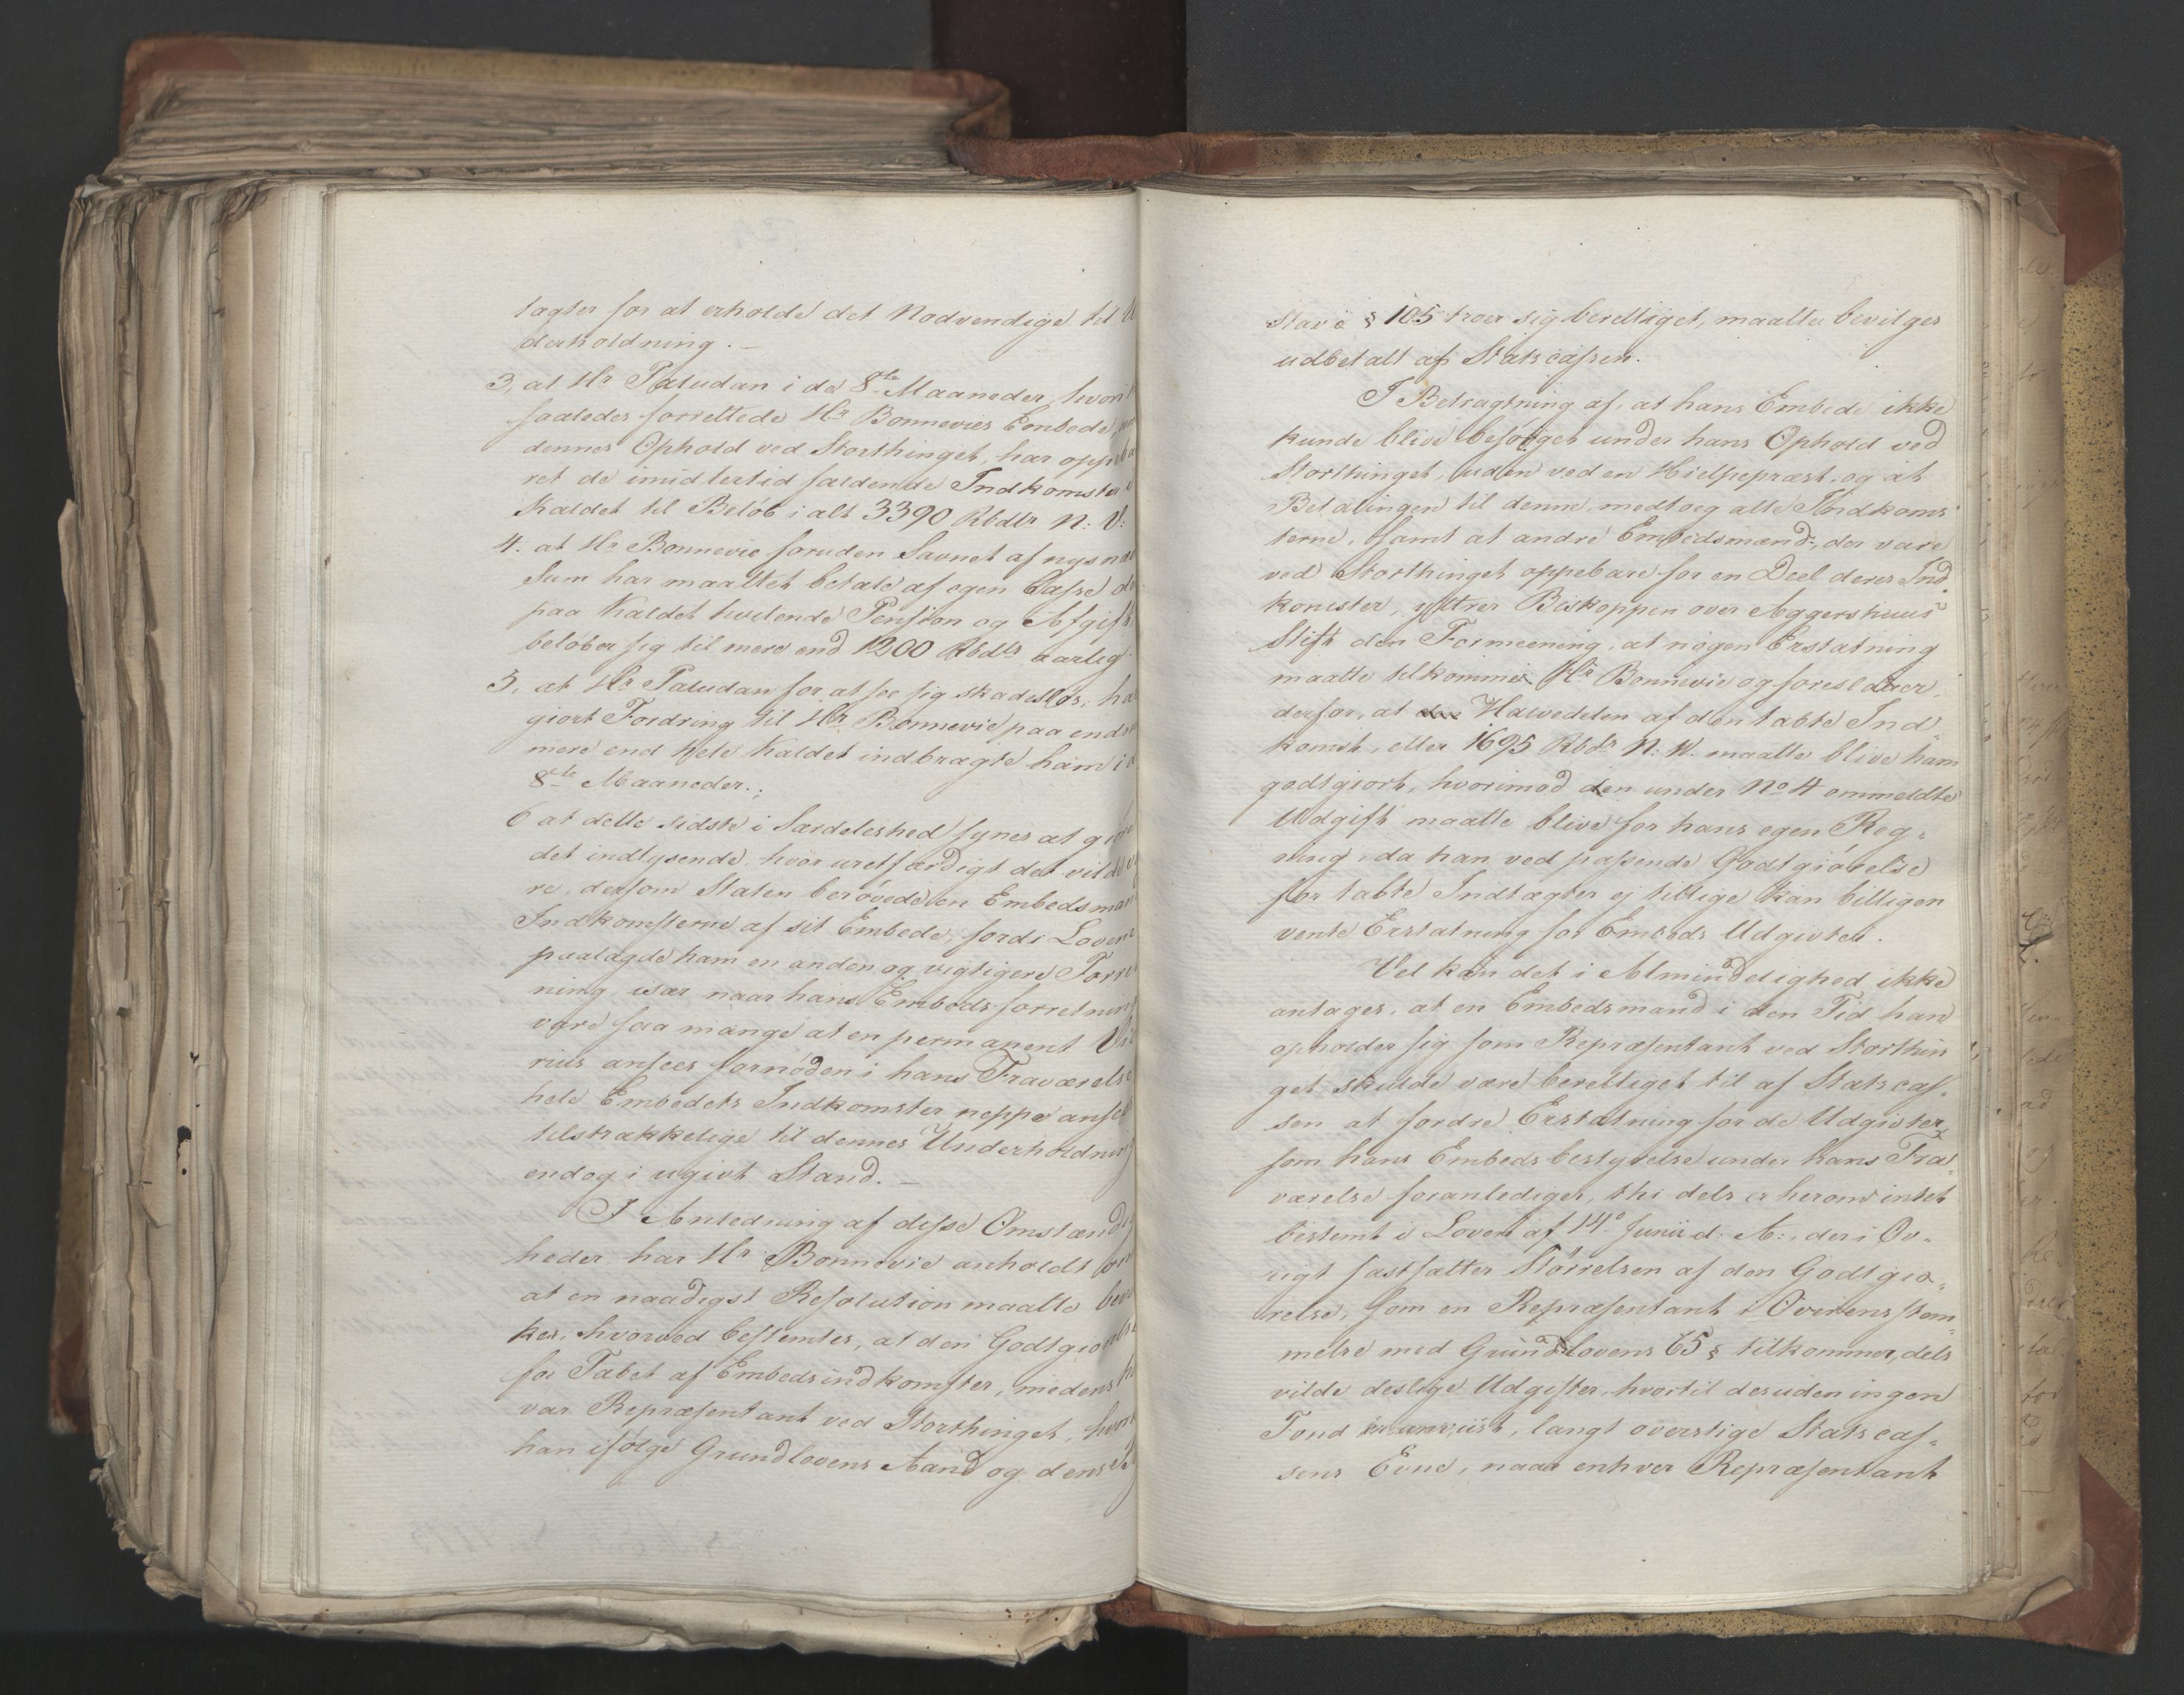 tagter for at erholde det Nodvendige til U
derholdning. –
3, at Hr Paludan i de 8te Maaneder, hvori
saaledes forrettede Hr Bonnevies Embede
dennes Ophold ved Storthinget, har oppeba
ret de imidlertid faldende Indkomster
Kaldet til Beløb i alt 3390 Rbdlr N: V:
4. at Hr Bonnevie foruden Savnet af nys næ
Sum har maattet betale af egen Casse de
paa Kaldet hvilende Pension og Afgift
beløber sig til mere end 1200 Rbdlr aarlig
5, at Hr Paludan for at see sig skadesløs, ha
giort Fordring til Hr Bonnevie paa end
mere end hele Kaldet indbragte ham i d
8te Maaneder.;
6 at dette sidste i Særdeleshed synes at giø
det indlysende, hvor uretfærdigt det vilde
re, dersom Staten berøvede en Embedsman
Indkomsterne af sit Embede, fordi Loven
paalagde ham en anden og vigtigere Forre
ning, især naar hans Embedsforretning
vare saa mange at en permanent Vi
rius ansees fornøden i hans Fraværelse
hele Embedets Indkomster neppe anse
tilstrækkelige til dennes Underholdning
endog i ugivt Stand. –
I Anledning af disse Omstændig
heder har Hr Bonnevie anholdt om
at en naadigst Resolution maatte bevi
kes, hvorved bestemtes, at den Godtgiørelse
for Tabet af Embedsindkomster, medens h
var Repræsentant ved Storthinget, hvor
han ifølge Grundlovens Aand og dens B
stav i § 105 troer sig berettiget, maatte bevilges
udbetalt af Statscassen.
I Betragtning af, at hans Embede ikke
kunde blive besørget under hans Ophold ved
Storthinget, uden ved en Hielpepræst, og at
Betalingen til denne medtog alle Indkoms
terne, samt at andre Embedsmænd, der vare
ved Storthinget oppebare for en Deel deres Ind
komster, yttrer Biskoppen over Aggershuus
Stift den Formeening, at nogen Erstatning
maatte tilkomme Hr Bonnevie og foreslaaer
derfor, at den Halvedelen af den tabte Ind
komst, eller 1695 Rbdr N. V. maatte blive ham
godtgiort, hvorimod den under No 4 ommeldte
Udgift maatte blive for hans egen Reg-
ning, da han ved passende Godtgiørelse
for tabte Indtægter ej tillige kan billigen
vente Erstatning for Embeds Udgivter.
Vel kan det i Almindelighed ikke
antages, at en Embedsmand i den Tid han
opholder sig som Repræsentant ved Storthin
get skulde være berettiget til af Statscas-
sen at fordre Erstatning for de Udgivter
som hans Embedsbestyrelse under hans Fra-
værelse foranlediger, thi dels er herom intet
bestemt i Loven af 14de Junii d: A:, der i Ov-
rigt fastsætter Størrelsen af den Godtgiø-
relse, som en Repræsentant i Overensstem-
melse med Grundlovens 65 § tilkommer, dels
vilde deslige Udgifter, hvortil desuden ingen
Fond er anviist, langt overstige Statscas-
sens Evne, naar enhver Repræsentant